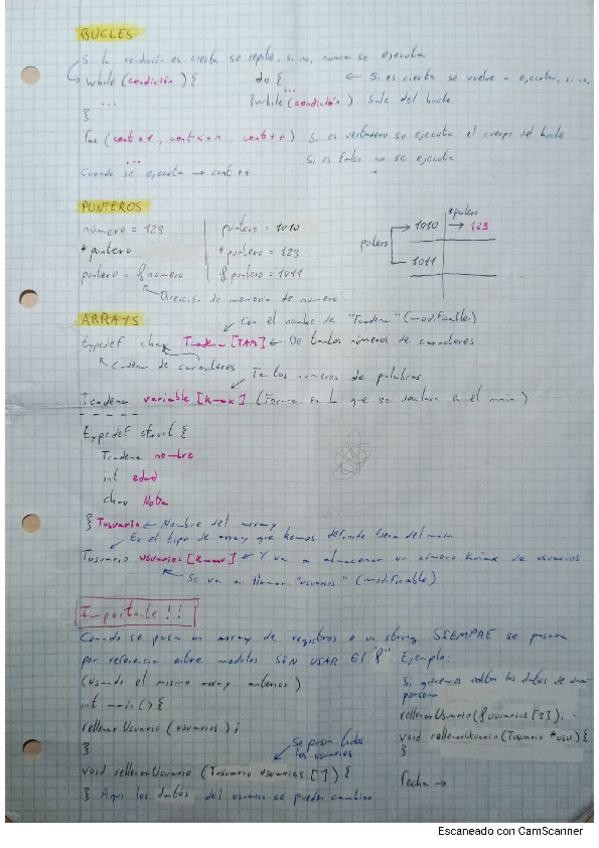 BUCLES
Si la condición es cierta se repite, si no, nunca se ejecuta
while (condición) {
...
}
do {
...
} while (condición)
← Si es cierta se vuelve a ejecutar, si no,
sale del bucle
for (cont = 1, cont <= n, cont++)
...
Si es verdadero se ejecuta el cuerpo del bucle
Si es falso no se ejecuta
Cuando se ejecuta → cont++
PUNTEROS
número = 123
*puntero
puntero = & numero
Dirección de memoria de numero
puntero = 1010
*puntero = 123
&puntero = 1011
puntero
1010
*puntero
→ 123
1011
ARRAYS
Con el nombre de "Tcadena" (modificable)
typedef char Tcadena [TAM] ← De tantos números de caracteres
Cadena de caracteres
Tantos números de palabras
Tcadena variable [kmax] (Forma en la que se declara en el main)
typedef struct {
Tcadena nombre
int edad
char Nota
} Tusuario ← Nombre del array
Es el tipo de array que hemos definido fuera del main
Tusuario usuarios [kmax] ← Y va a almacenar un número kmax de usuarios
Se va a llamar "usuarios" (modificable)
Importante!!
Cuando se pasa un array de registros o un string SIEMPRE se pasan
por referencia entre modulos SIN USAR El "&". Ejemplo:
(usando el mismo array anterior)
int main () {
rellenarUsuario (usuarios);
}
Se pasan todos
los usuarios
void rellenarUsuario (Tusuario usuarios []) {
} Aqui los datos del usuario se pueden cambiar
Si queremos editar los datos de una
persona
rellenarUsuario(&usuarios [3]);
void rellenarUsuario (Tusuario *usu) {
}
Fecha →
Escaneado con CamScanner